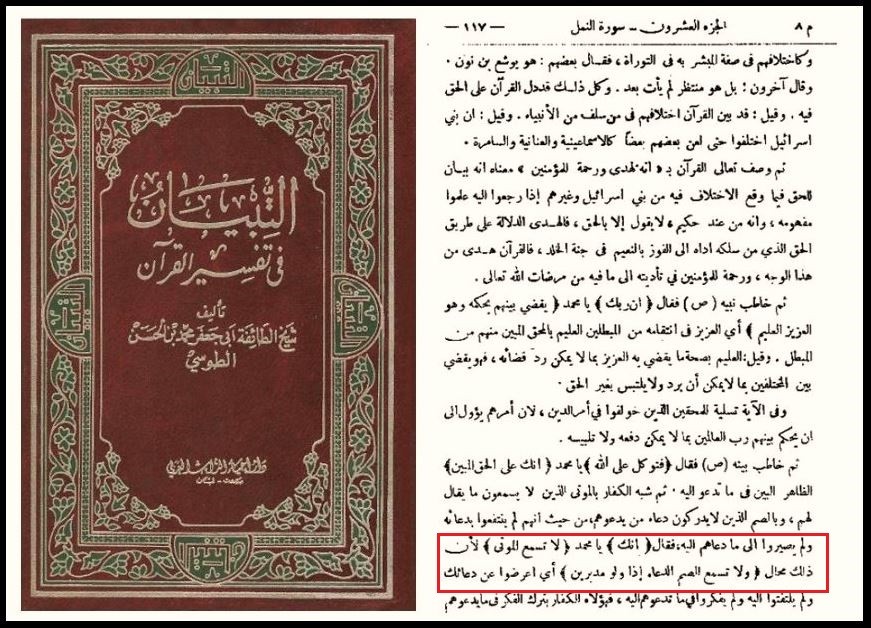 التبيان
التبيان
التبيان
التبيان
التبيان
في تفسير القرآن
تأليف
شيخ الطائفة ابي جعفر محمد بن الحسن
الطوسي
دار احياء التراث العربي
بيروت - لبنان
م ٨ الجزء العشرون - سورة النمل - ١١٧ -
وكاختلافهم في صفة المبشر به في التوراة ، فقال بعضهم : هو يوشع بن نون .
وقال آخرون : بل هو منتظر لم يأت بعد . وكل ذلك قد دل القرآن على الحق
فيه . وقيل : قد بين القرآن اختلافهم في من سلف من الأنبياء . وقيل : ان بني
اسرائيل اختلفوا حتى لعن بعضهم بعضاً كالاسماعينية والعنانية والسامرة .
ثم وصف تعالى القرآن بـ « انه لهدى ورحمة للمؤمنين » معناه انه بيان
للحق فيما وقع الاختلاف فيه من بني اسرائيل وغيرهم إذا رجعوا اليه علموا
مفهومه ، وانه من عند حكيم ، لا يقول إلا بالحق ، فالهدى الدلالة على طريق
الحق الذي من سلكه اداه الى الفوز بالنعيم في جنة الخلد ، فالقرآن هدى من
هذا الوجه ، ورحمة للمؤمنين في تأديته الى ما فيه من مرضات الله تعالى .
ثم خاطب نبيه ( ص ) فقال ﴿ ان ربك ﴾ يا محمد ﴿ يقضي بينهم بحكمه وهو
العزيز العليم ﴾ أي العزيز في انتقامه من المبطلين العليم بالمحق المبين منهم من
المبطل . وقيل : العليم بصحة ما يقضي به العزيز بما لا يمكن رد قضائه ، فهو يقضي
بين المختلفين بما لا يمكن أن يرد ولا يلتبس بغير الحق .
وفي الآية تسلية للمحقين الذين خولفوا في أمر الدين ، لان أمرهم يؤول الى
ان يحكم بينهم رب العالمين بما لا يمكن دفعه ولا تلبيسه .
ثم خاطب نبيه (ص) فقال ﴿ فتوكل على الله ﴾ يا محمد ﴿ انك على الحق المبين ﴾
الظاهر البين في ما تدعو اليه . ثم شبه الكفار بالموتى الذين لا يسمعون ما يقال
لهم ، وبالصم الذين لا يدركون دعاء من يدعوهم، من حيث انهم لم ينتفعوا بدعائه
ولم يصيروا الى ما دعاهم اليه، فقال ﴿ إنك ﴾ يا محمد ﴿ لا تسمع الموتى ﴾ لأن
ذلك محال ﴿ ولا تسمع الصم الدعاء إذا ولو مدبرين ﴾ أي اعرضوا عن دعائك
ولم يلتفتوا اليه ولم يفكروا في ما تدعوهم اليه ، فهؤلاء الكفار بترك الفكر في ما يدعوهم